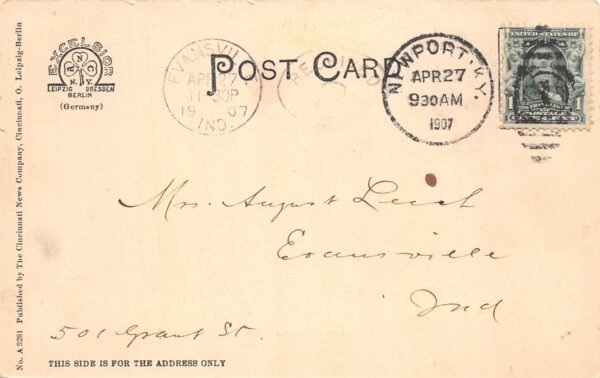 EXCELSIOR
N.C.
R.
N.Y.
LEIPZIG DRESDEN
BERLIN
(Germany)
EVANSVILLE
APR 27
11-30P
19 07
IND.
RECEIVED
POST CARD
NEWPORT, KY.
APR 27
930AM
1907
UNITED STATES OF
1 1
ONE CENT
Mrs. August
Evansville
Ind
501 Grant St.
THIS SIDE IS FOR THE ADDRESS ONLY
No. A 3281 Published by The Cincinnati News Company, Cincinnati, O. Leipzig-Berlin